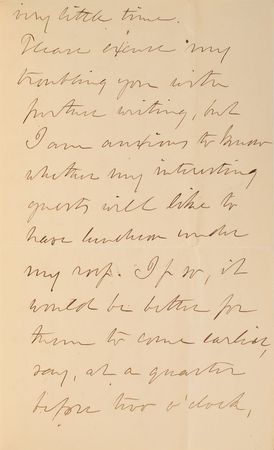 very little time.
Please excuse my
troubling you with
further writing, but
I am anxious to know
whether my interesting
guests will like to
have luncheon under
my roof. If so, it
would be better for
them to come earlier,
say, at a quarter
before two o'clock,